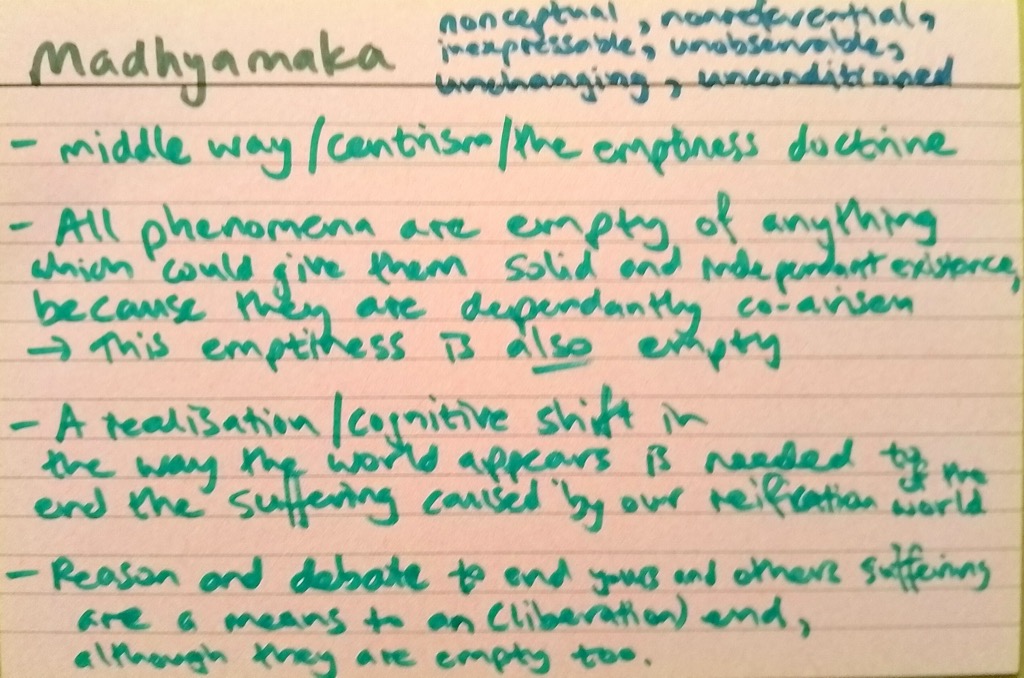 Madhyamaka
nonceptual, nonreferential,
inexpressable, unobservable,
unchanging, unconditioned
- middle way/centrism/the emptiness doctrine
- All phenomena are empty of anything
which could give them solid and independant existence,
because they are dependantly co-arisen
→ This emptiness is also empty
- A realisation/cognitive shift in
the way the world appears is needed to
end the suffering caused by our reification of the world
- Reason and debate to end yours and others suffering
are a means to an (liberation) end,
although they are empty too.